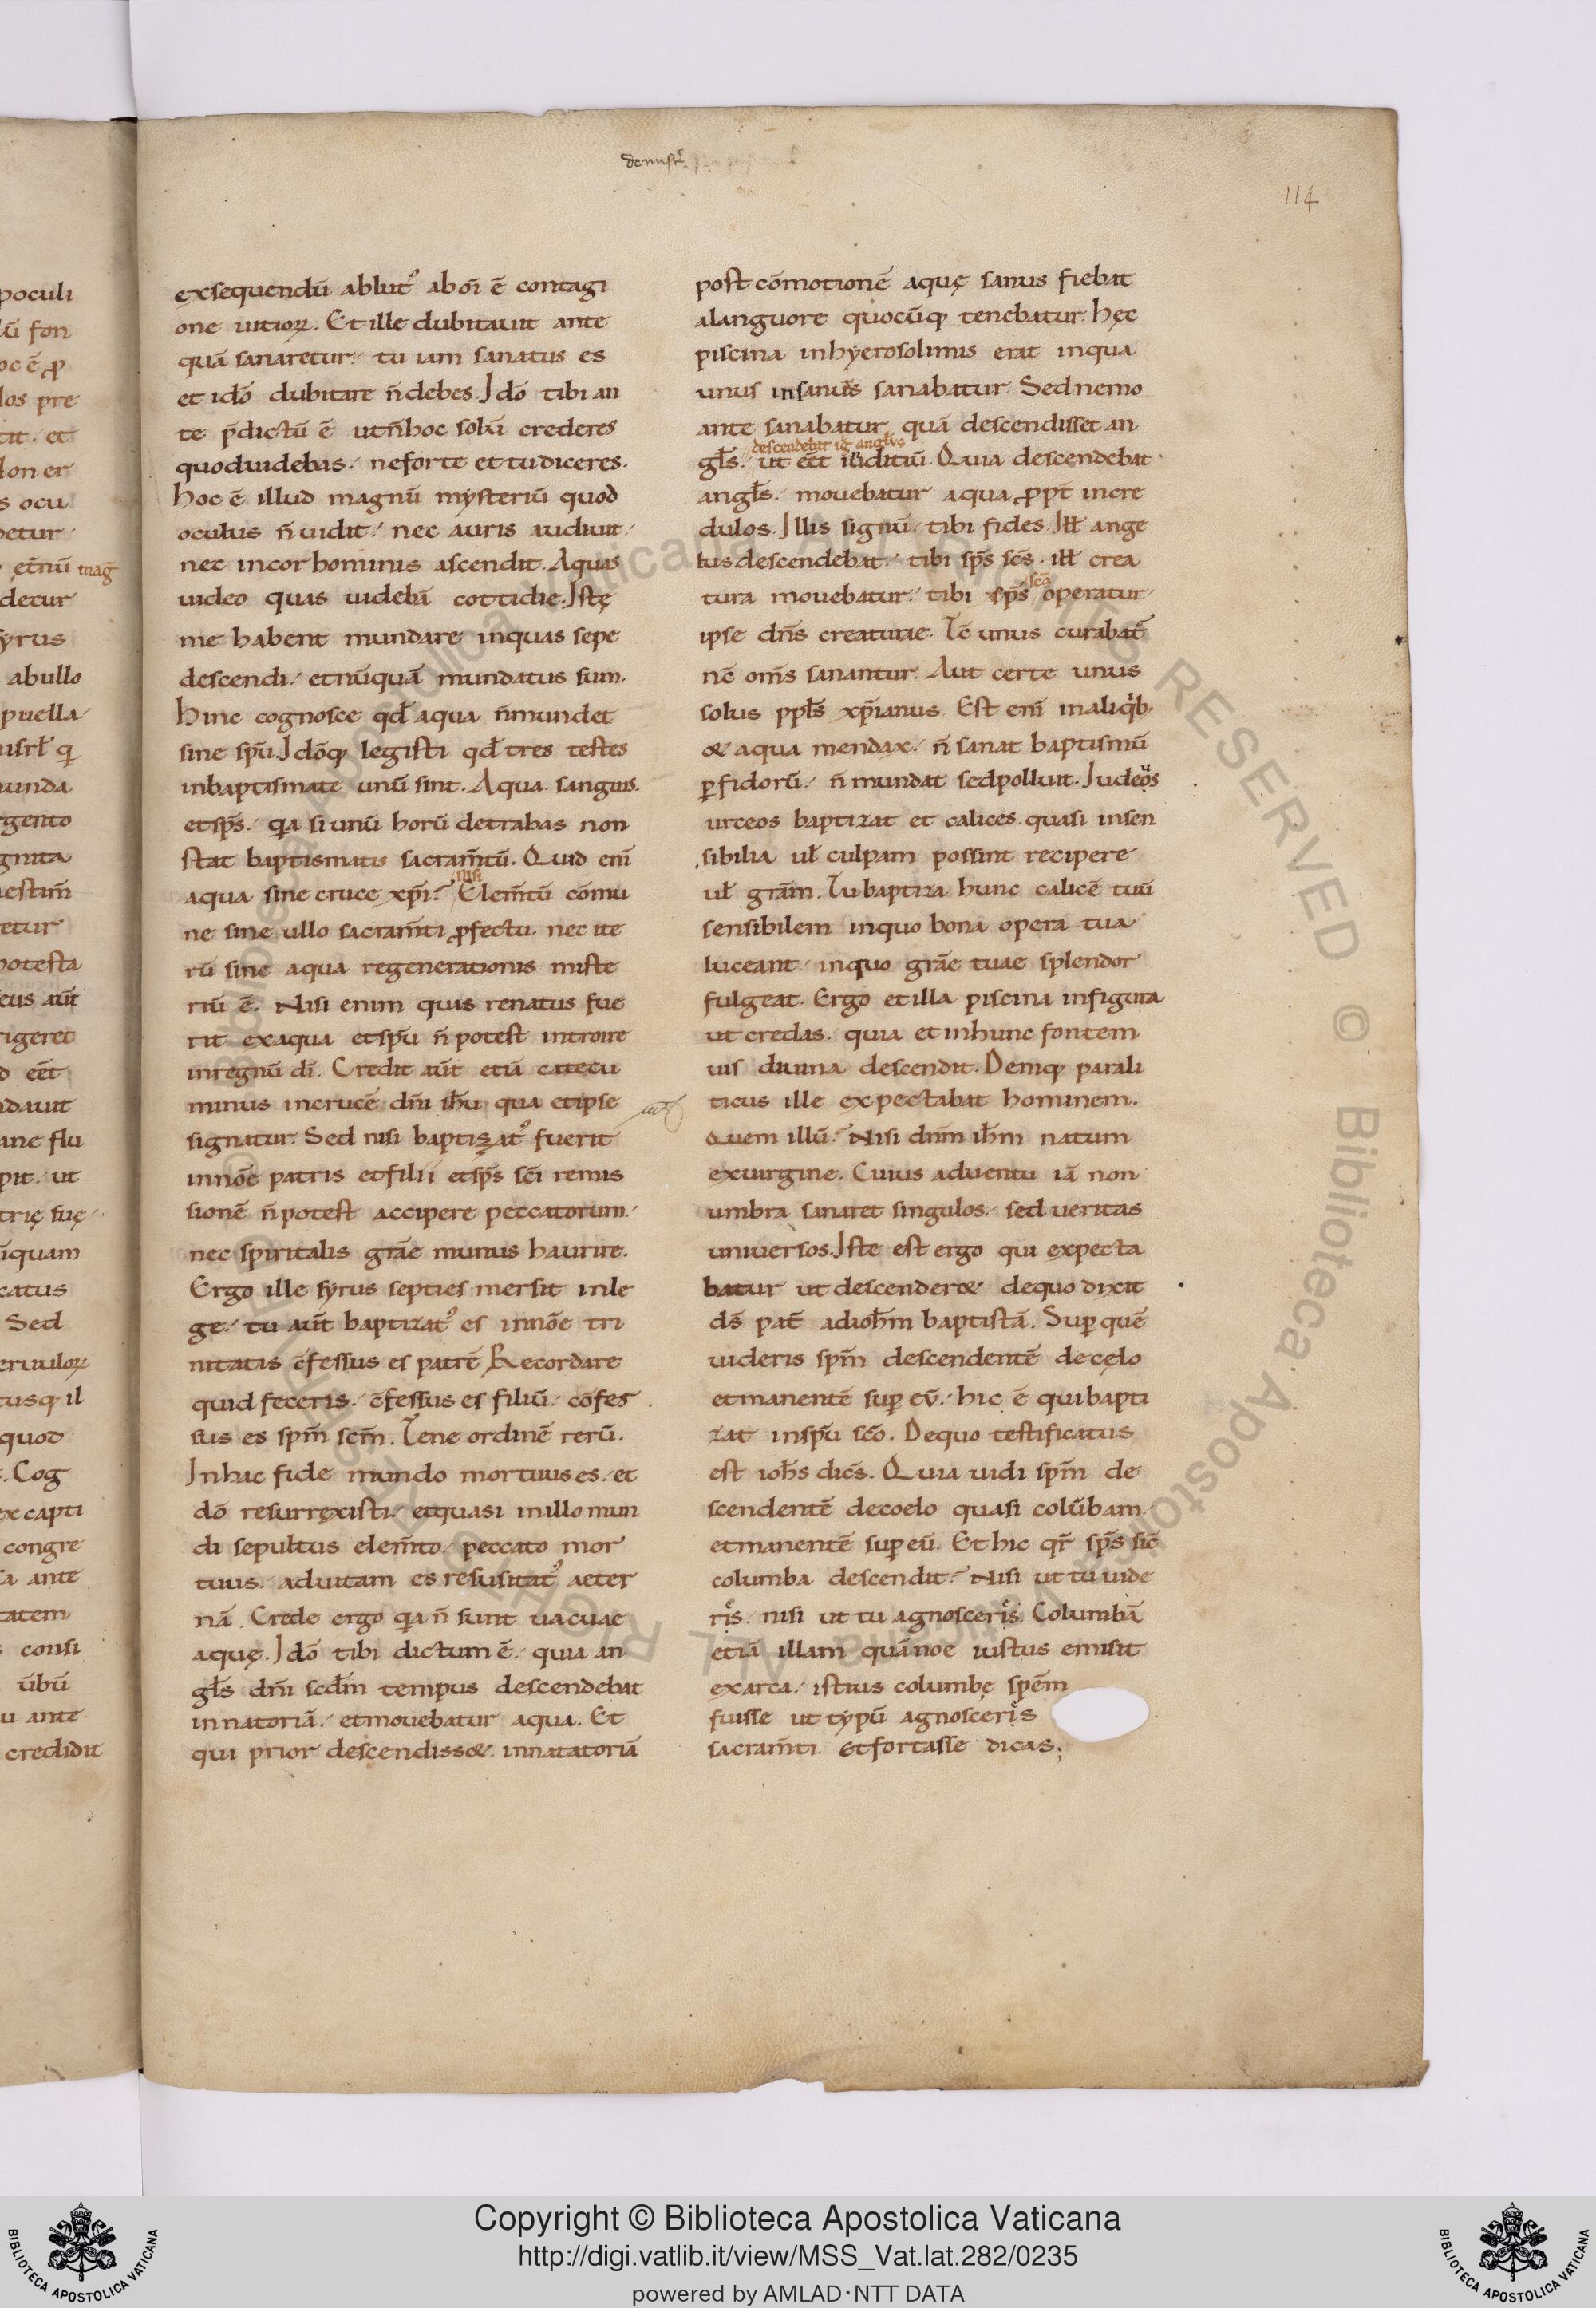 de mistꝰ
114
poculi
lū fon
oc ē p̱
los pre
tit. et
lon er
s ocu
petur
ęt n̄ū mag̅
detur
syrus
abullo
puella
isrł q̇
unda
rgento
gnita
estim̄
etur
potesta
cus aūt
rigeret
d eēt
ndauit
ane flu
pit. ut
trię suę
ūquam
catus
Sed
eruuloꝝ
tusq; il
quod
. Cog
ex capti
congre
sa ante
tatem
consi
ūbū
u ante
credidit
exsequendū ablutꝰ ab oī ē contagi
one uitioꝝ. Et ille dubitauit ante
quā sanaretur. tu iam sanatus es
et idō dubitare n̄ debes. Idō tibi an
te p̄dictū ē ut n̄ hoc solū crederes
quod uidebas. ne forte et tu diceres.
hoc ē illud magnū mysteriū quod
oculus n̄ uidit. nec auris audiuit.
nec in cor hominis ascendit. Aquas
uideo quas uidebā cottidie. Istę
me habent mundare in quas sepe
descendi. et nūquā mundatus sum.
Hinc cognosce qđ aqua n̄ mundet
sine spū. Idōq; legisti qđ tres testes
in baptismate unū sint. Aqua. sanguis.
et sps̄. qa si unū horū detrahas non
stat baptismatis sacram̄tū. Quid enī
nisi
aqua sine cruce xpi? Elem̄tū cōmu
ne sine ullo sacram̄ti ꝓfectu. nec ite
rū sine aqua regenerationis miste
riū ē. Nisi enim quis renatus fue
rit ex aqua et spū n̄ potest introire
in regnū dī. Credit aūt etiā catecu
minus in crucē dn̄i ihū qua et ipse
signatur. Sed nisi baptizatꝰ fuerit
in nōe patris et filii et sps̄ sc̄i remis
sionē n̄ potest accipere peccatorum.
nec spiritalis grāe munus haurire.
Ergo ille syrus septies mersit in le
ge. tu aūt baptizatꝰ es in nōe tri
nitatis c̄fessus es patrē Recordare
quid feceris. c̄fessus es filiū. cōfes
sus es spm̄ scm̄. Tene ordinē rerū.
In hac fide mundo mortuus es. et
dō resurrexisti. et quasi in illo mun
di sepultus elem̄to. peccato mor
tuus. ad uitam es resusitatꝰ aeter
nā. Crede ergo qa n̄ sunt uacuae
aquę. Idō tibi dictum ē. quia an
gł̄s dn̄i scđm tempus descendebat
in natoriā. et mouebatur aqua. Et
qui prior descendiss&. in natatoriā
post cōmotionē aquę sanus fiebat
a languore quocūq; tenebatur. hęc
piscina in hyerosolimis erat in qua
unus in sanus sanabatur. Sed nemo
ante sanabatur quā descendisset an
descendebat ig̅ angłus
gł̄s. ut eēt iuditiū. Quia descendebat
angł̄s. mouebatur aqua ꝓpt̄ incre
dulos. Illis signū. tibi fides. Ill̄ ange
lus descendebat. tibi sps̄ scs̄. ill̄ crea
scs̄
tura mouebatur. tibi sps̄ operatur
ipse dn̄s creaturae. Tc̄ unus curabat̄
nc̄ om̄s sanantur. Aut certe unus
solus ppl̄s xp̄ianus. Est enī in aliqi̇b;
& aqua mendax. n̄ sanat baptismū
ꝑfidorū. n̄ mundat sed polluit. Iudeus
urceos baptizat et calices. quasi insen
sibilia ul̄ culpam possint recipere
ul̄ grām. Tu baptiza hunc calicē tuū
sensibilem in quo bona opera tua
luceant. in quo grāe tuae splendor
fulgeat. Ergo et illa piscina in figura
ut credas. quia et in hunc fontem
uis diuina descendit. Deniq; parali
ticus ille expectabat hominem.
Quem illū? Nisi dnm̄ ihm̄ natum
ex uirgine. Cuius aduentu iā non
umbra sanaret singulos. sed ueritas
uniuersos. Iste est ergo qui expecta
batur ut descender& de quo dixit
ds̄ pat̄ ad ioh̄m baptistā. Suꝑ quē
uideris spm̄ descendentē de cęlo
et manentē suꝑ eū. hic ē qui bapti
zat in spū scō. De quo testificatus
est ioh̄s dicēs. Quia uidi spm̄ de
scendentē de coelo quasi colūbam.
et manentē suꝑ eū. Et hic qr̄ sps̄ sic̄
columba descendit? Nisi ut tu uide
ris. nisi ut tu agnosceris. Columbā
etiā illam quā noe iustus emisit
ex arca. istius columbę spēm
fuisse ut typū agnosceris
sacram̄ti. Et fortasse dicas;
Copyright © Biblioteca Apostolica Vaticana
http://digi.vatlib.it/view/MSS_Vat.lat.282/0235
powered by AMLAD·NTT DATA